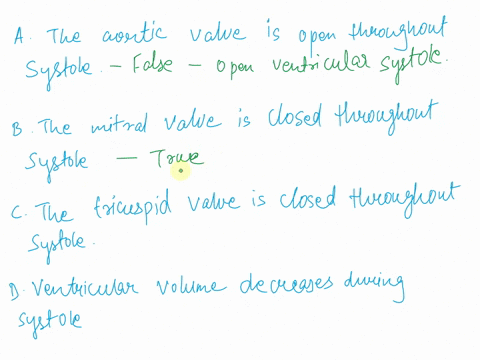 A. The aortic valve is open throughout
Systole. - False - open ventricular systole.
B. The mitral valve is closed throughout
Systole - True
C. The tricuspid valve is closed throughout
Systole.
D. Ventricular volume decreases during
systole